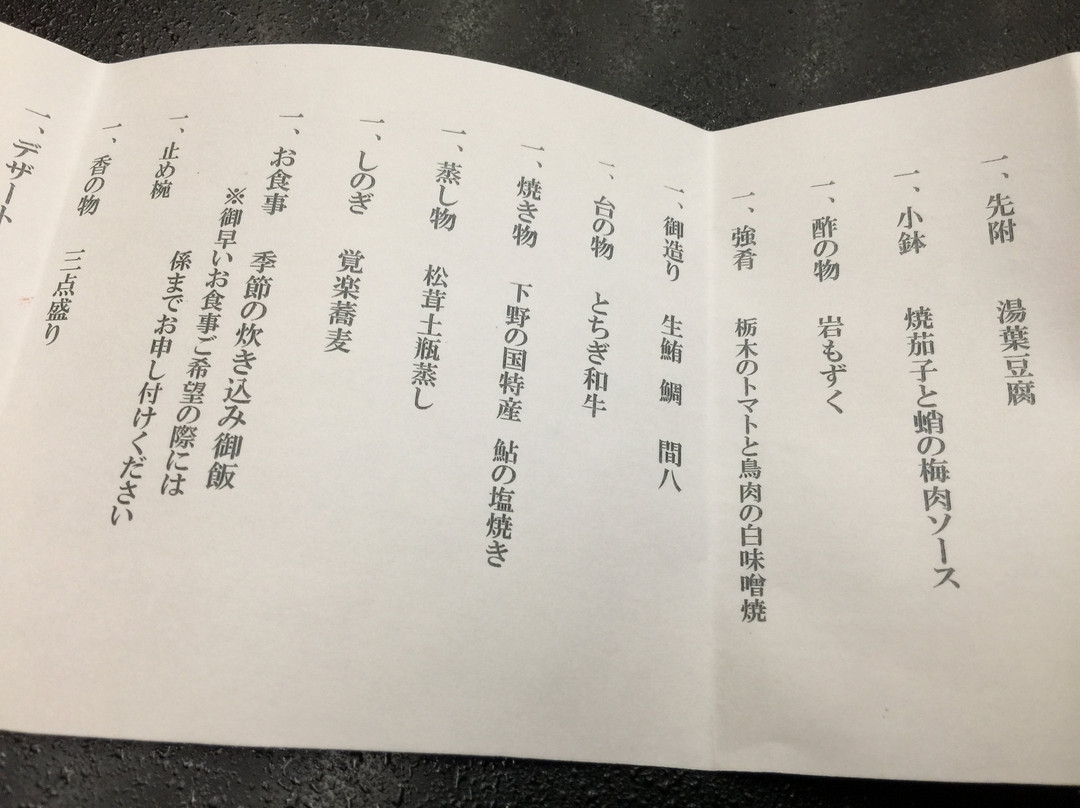 一、先附　湯葉豆腐
一、小鉢　焼茄子と蛸の梅肉ソース
一、酢の物　岩もずく
一、強肴　栃木のトマトと鳥肉の白味噌焼
一、御造り　生鮪　鯛　間八
一、台の物　とちぎ和牛
一、焼き物　下野の国特産　鮎の塩焼き
一、蒸し物　松茸土瓶蒸し
一、しのぎ　覚楽蕎麦
一、お食事　季節の炊き込み御飯
※御早いお食事ご希望の際には
係までお申し付けください
一、止め椀
一、香の物　三点盛り
一、デザート